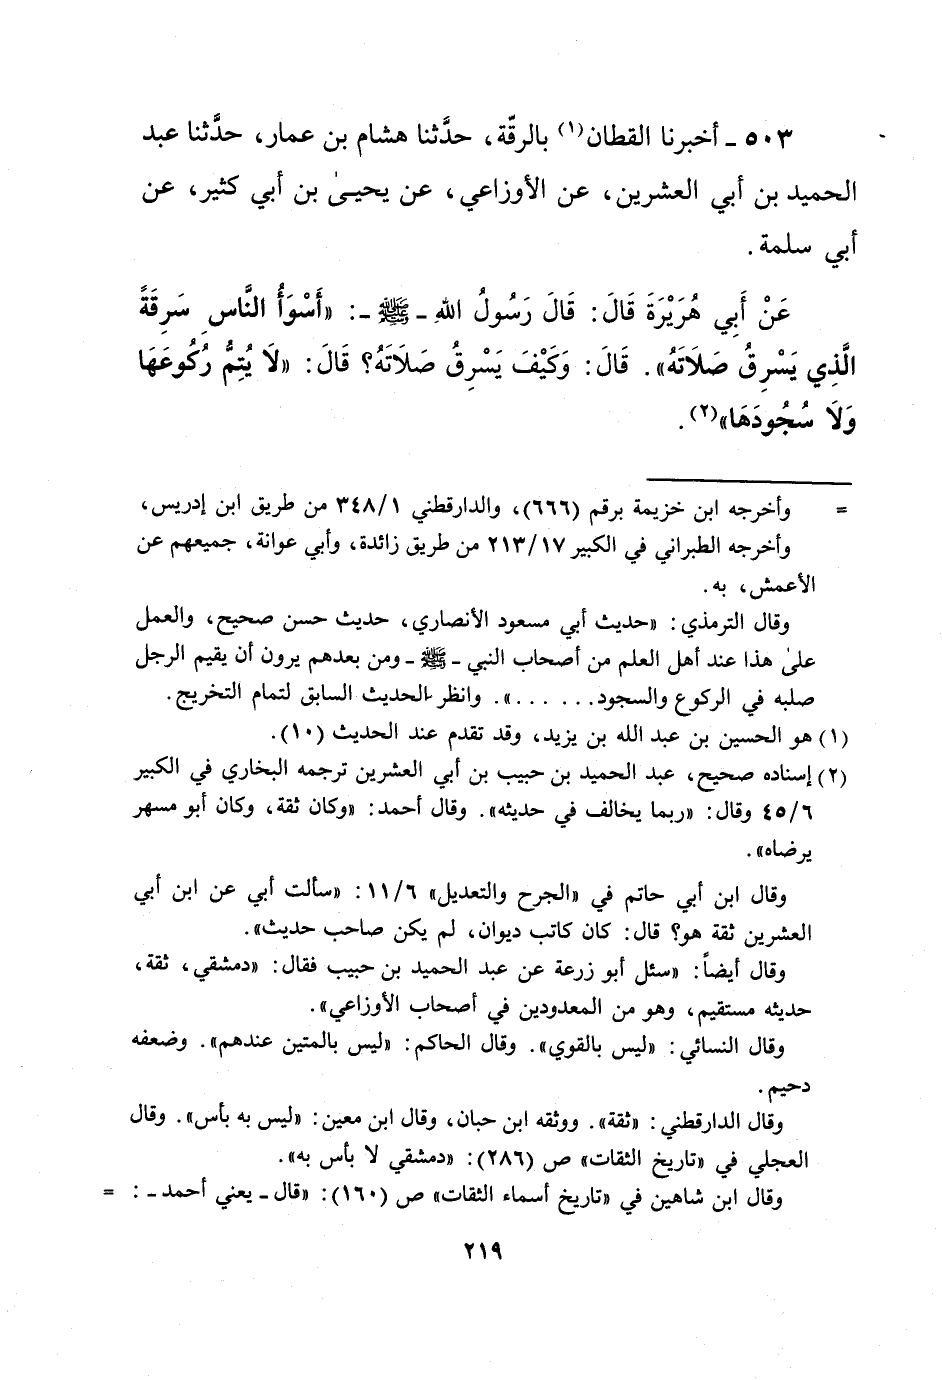 ٥٠٣ ـ أخبرنا القطان(١) بالرقّة، حدَّثنا هشام بن عمار، حدَّثنا عبد
الحميد بن أبي العشرين، عن الأوزاعي، عن يحيىٰ بن أبي كثير، عن
أبي سلمة.
عَنْ أَبِي هُرَيْرَةَ قَالَ: قَالَ رَسُولُ اللهِ ـ ﷺ ـ: «أَسْوَأُ النَّاسِ سَرِقَةً
الَّذِي يَسْرِقُ صَلَاتَهُ». قَالَ: وَكَيْفَ يَسْرِقُ صَلَاتَهُ؟ قَالَ: «لَا يُتِمُّ رُكُوعَهَا
وَلَا سُجُودَهَا»(٢).
= وأخرجه ابن خزيمة برقم (٦٦٦)، والدارقطني ٣٤٨/١ من طريق ابن إدريس،
وأخرجه الطبراني في الكبير ٢١٣/١٧ من طريق زائدة، وأبي عوانة، جميعهم عن
الأعمش، به.
وقال الترمذي: «حديث أبي مسعود الأنصاري، حديث حسن صحيح، والعمل
علىٰ هذا عند أهل العلم من أصحاب النبي ـ ﷺ ـ ومن بعدهم يرون أن يقيم الرجل
صلبه في الركوع والسجود......». وانظر الحديث السابق لتمام التخريج.
(١) هو الحسين بن عبد الله بن يزيد، وقد تقدم عند الحديث (١٠).
(٢) إسناده صحيح، عبد الحميد بن حبيب بن أبي العشرين ترجمه البخاري في الكبير
٤٥/٦ وقال: «ربما يخالف في حديثه». وقال أحمد: «وكان ثقة، وكان أبو مسهر
يرضاه».
وقال ابن أبي حاتم في «الجرح والتعديل» ١١/٦: «سألت أبي عن ابن أبي
العشرين ثقة هو؟ قال: كان كاتب ديوان، لم يكن صاحب حديث».
وقال أيضاً: «سئل أبو زرعة عن عبد الحميد بن حبيب فقال: «دمشقي، ثقة،
حديثه مستقيم، وهو من المعدودين في أصحاب الأوزاعي».
وقال النسائي: «ليس بالقوي». وقال الحاكم: «ليس بالمتين عندهم». وضعفه
دحيم.
وقال الدارقطني: «ثقة». ووثقه ابن حبان، وقال ابن معين: «ليس به بأس». وقال
العجلي في «تاريخ الثقات» ص (٢٨٦): «دمشقي لا بأس به».
وقال ابن شاهين في «تاريخ أسماء الثقات» ص (١٦٠): «قال ـ يعني أحمد ـ: =
٢١٩